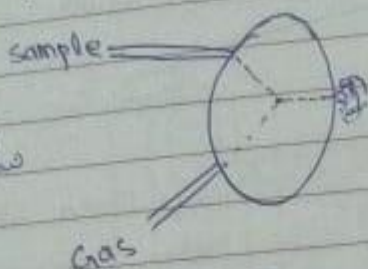 sample
w
Gas